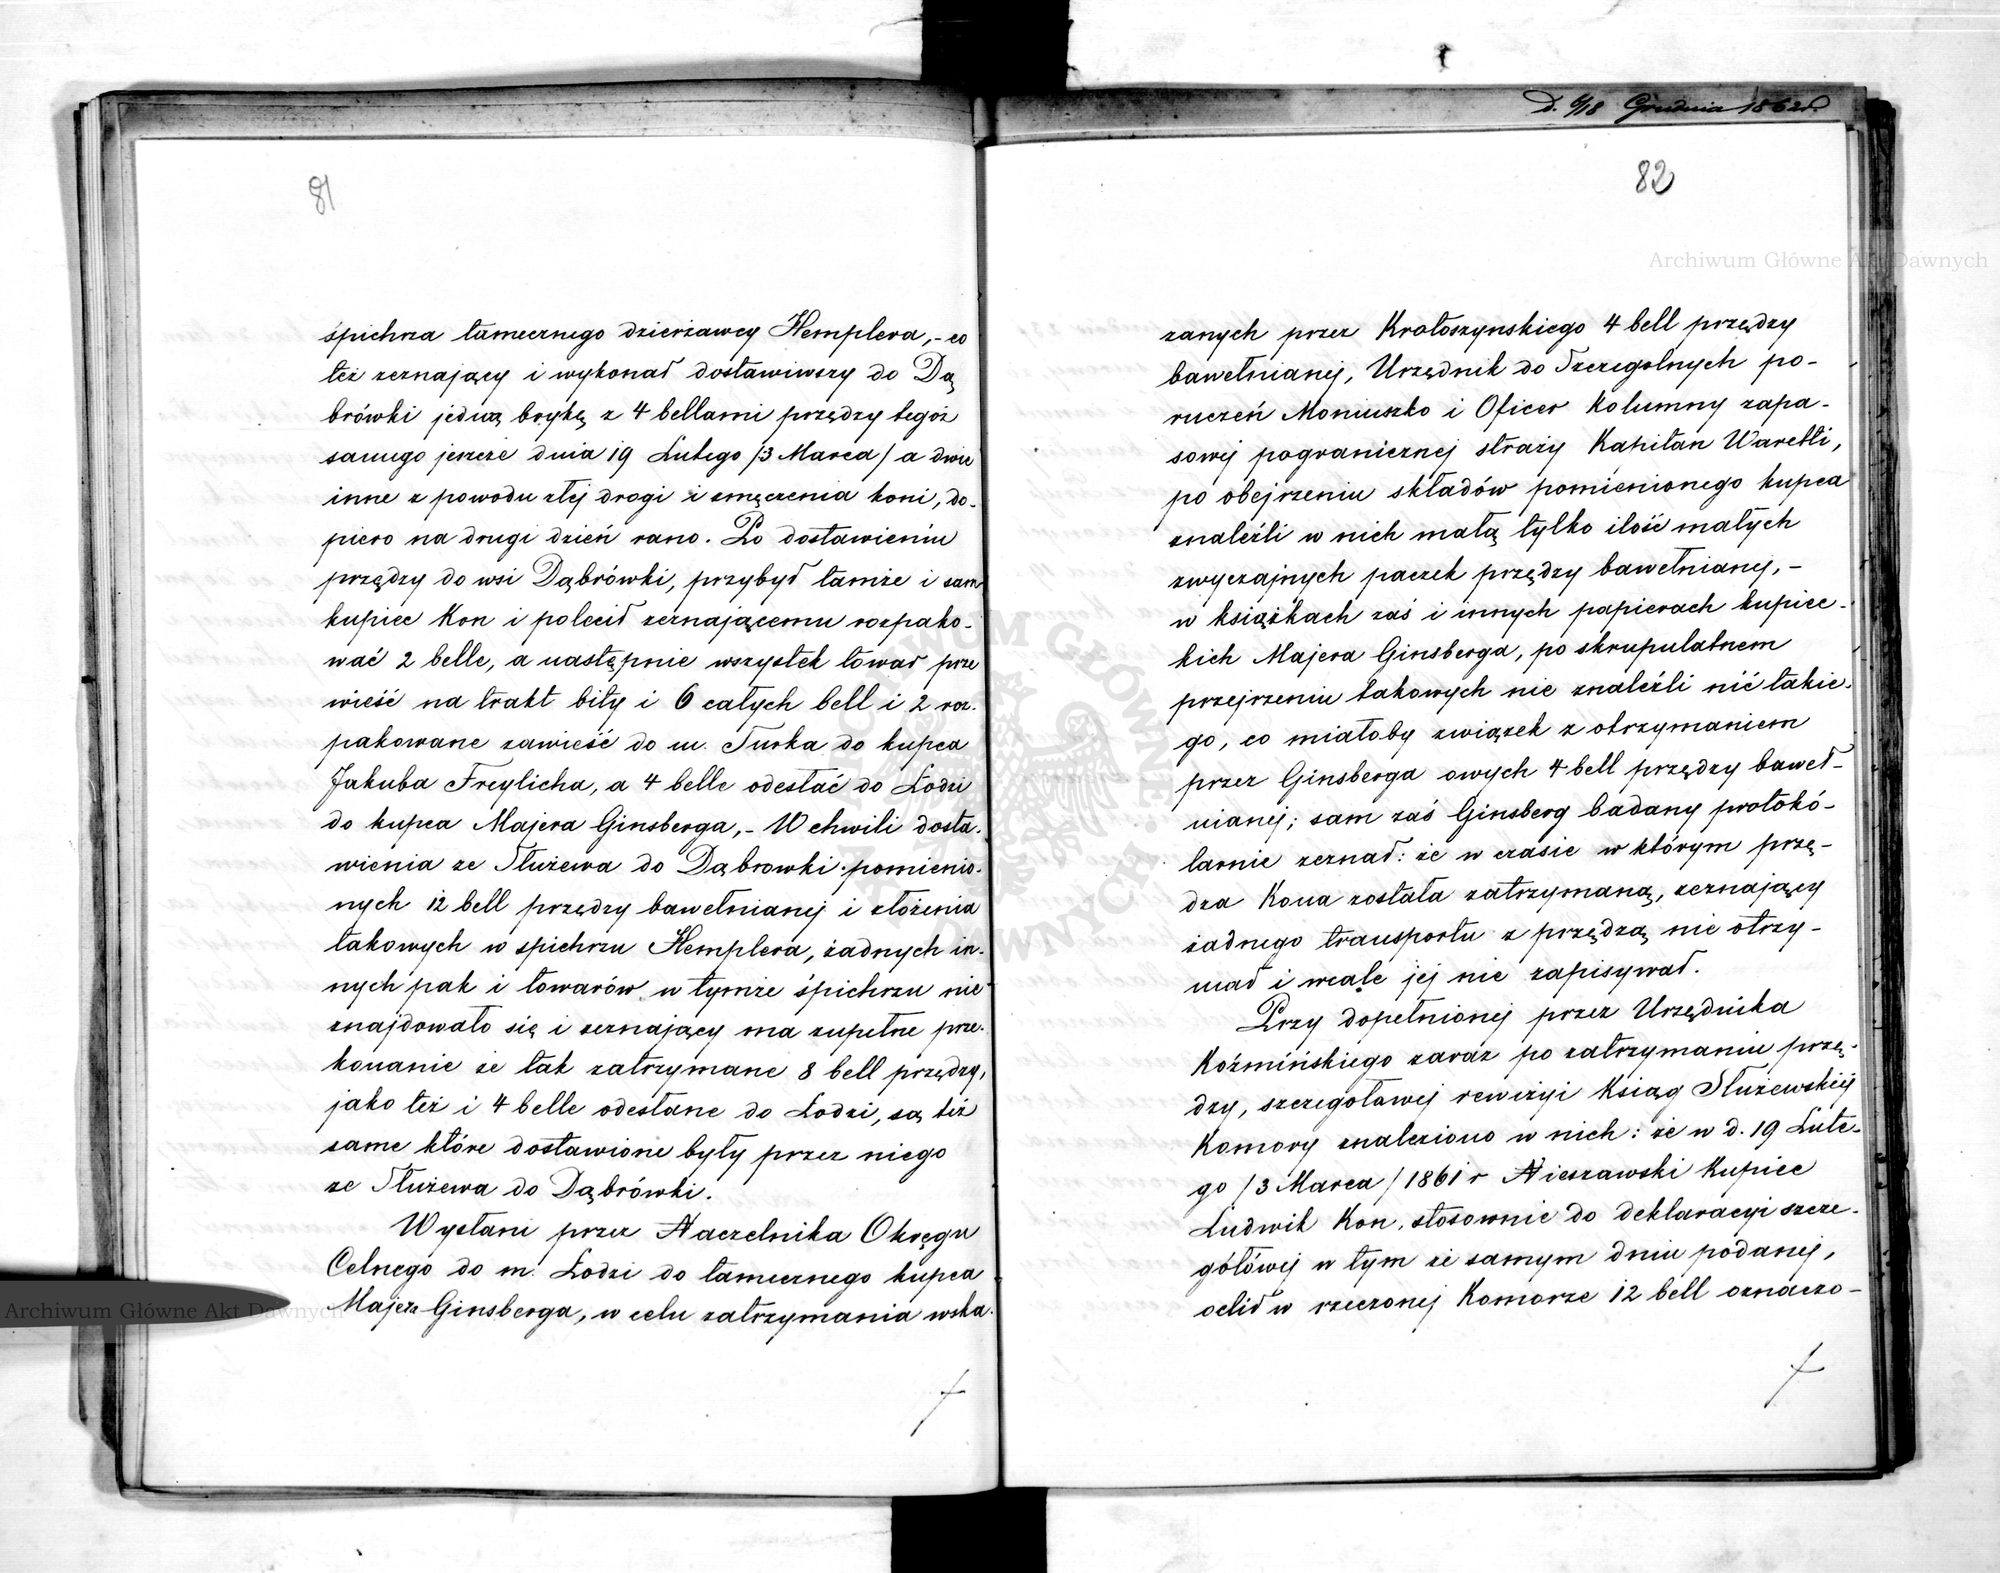 81
śpichrza tamecznego dzierżawcy Hemplera,- co
też zeznający i wykonał dostawiwszy do Dą
brówki jedną brykę z 4 bellami przędzy tegoż
samego jeszcze dnia 19 Lutego /3 Marca/ a dwie
inne z powodu złej drogi i zmęczenia koni, do-
piero na drugi dzień rano. Po dostawieniu
przędzy do wsi Dąbrówki, przybył tamże i sam
kupiec Kon i polecił zeznającemu rozpako-
wać 2 belle, a następnie wszystek towar prze
wieść na trakt bity i 6 całych bell i 2 roz-
pakowane zawieść do m. Turka do kupca
Jakuba Freylicha, a 4 belle odesłać do Łodzi
do kupca Majera Ginsberga,- W chwili dosta-
wienia ze Służewa do Dąbrowki pomienio-
nych 12 bell przędzy bawełnianej i złożenia
takowych w spichrzu Hemplera, żadnych in-
nych pak i towarów w tymże śpichrzu nie
znajdowało się i zeznający ma zupełne prze-
konanie że tak zatrzymane 8 bell przędzy,
jako też i 4 belle odesłane do Łodzi, są też
same które dostawione były przez niego
ze Służewa do Dąbrówki.
Wysłani przez Naczelnika Okręgu
Celnego do m. Łodzi do tamecznego kupca
Majera Ginsberga, w celu zatrzymania wska-
D. 6/18 Grudnia 1862 r.
82
zanych przez Krotoszynskiego 4 bell przędzy
bawełnianej, Urzędnik do Szczegolnych po-
ruczeń Moniuszko i Oficer Kolumny zapa-
sowej pogranicznej straży Kapitan Waretti,
po obejrzeniu składów pomienionego kupca
znaleźli w nich małą tylko ilość małych
zwyczajnych paczek przędzy bawełnianej,-
w książkach zaś i innych papierach kupiec-
kich Majera Ginsberga, po skrupulatnem
przejrzeniu takowych nie znaleźli nić takie-
go, co miałoby związek z otrzymaniem
przez Ginsberga owych 4 bell przędzy baweł-
nianej; sam zaś Ginsberg badany protokó-
larnie zeznał: że w czasie w którym przę-
dza Kona została zatrzymaną, zeznający
żadnego transportu z przędzą nie otrzy-
mał i wcale jej nie zapisywał.
Przy dopełnionej przez Urzędnika
Koźmińskiego zaraz po zatrzymaniu przę-
dzy, szczegołowej rewizyi Ksiąg Służewskiej
Komory znaleziono w nich: że w d. 19 Lute-
go /3 Marca/ 1861 r Nieszawski Kupiec
Ludwik Kon, stosownie do deklaracyi szcze-
gółowej w tym że samym dniu podanej,
oclił w rzeczonej Komorze 12 bell oznaczo-
Archiwum Główne Akt Dawnych
Archiwum Główne Akt Dawnych